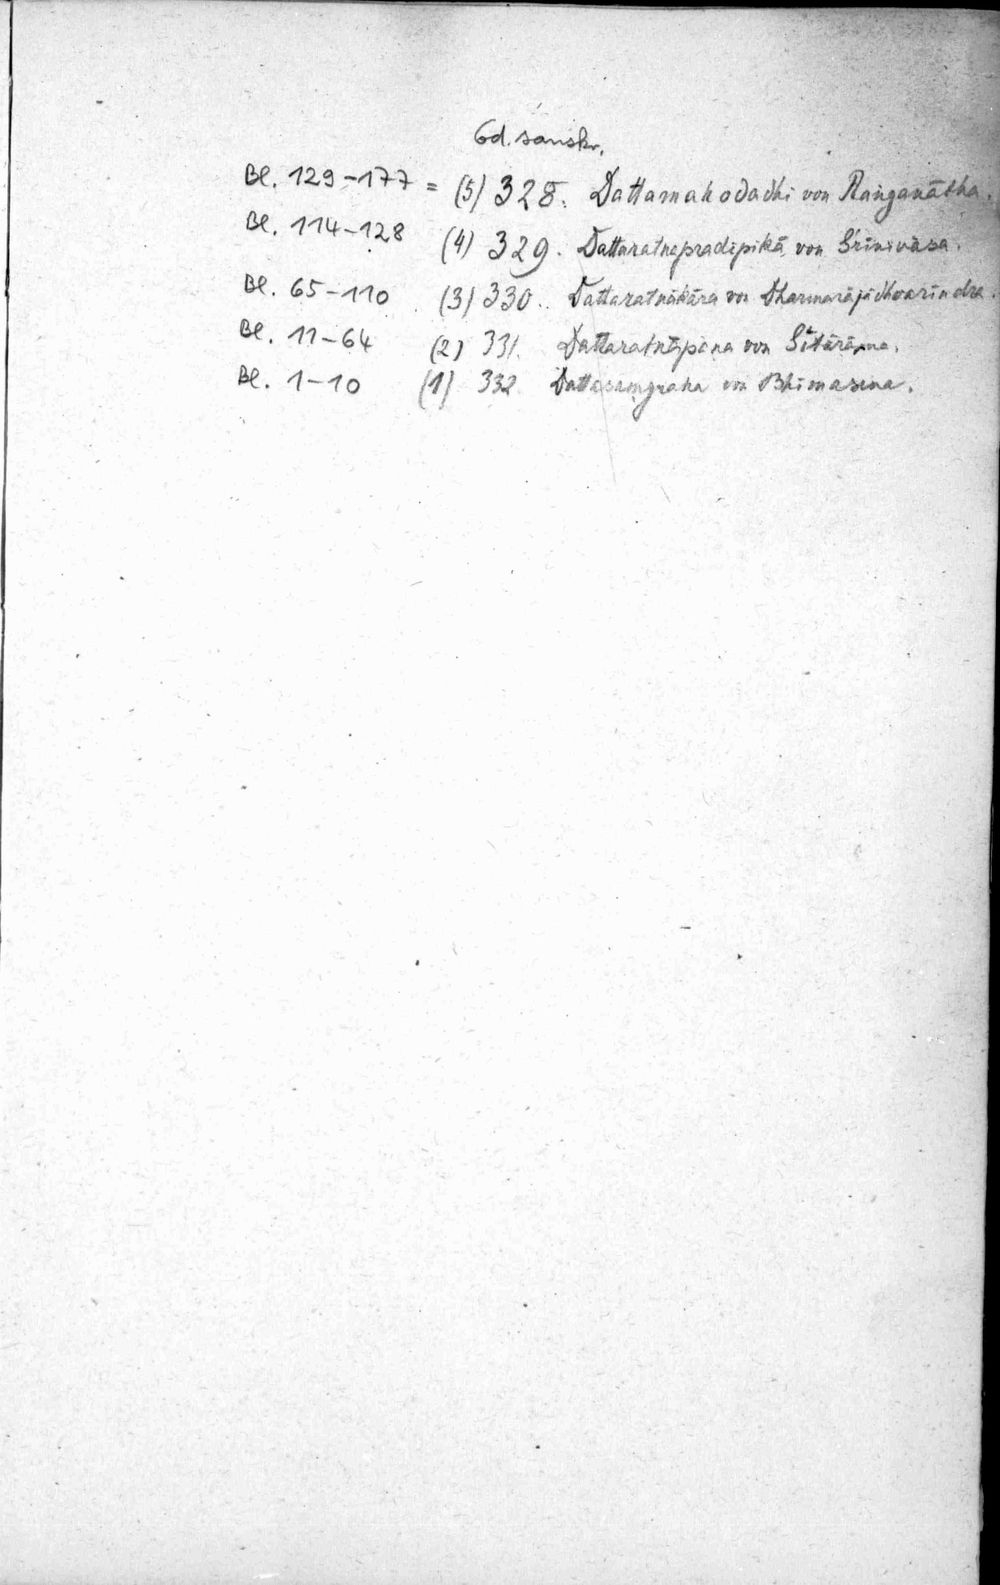 Cd. sanskr.
Bl. 129-177 = (5) 328. Dattamahodadhi von Raṅganātha.
Bl. 114-128 (4) 329. Dattaratnapradīpikā von Śrīnivāsa.
Bl. 65-110 (3) 330. Dattaratnākāra von Dharmarājādhvarīndra.
Bl. 11-64 (2) 331. Dattaratnārpaṇa von Sītārāma.
Bl. 1-10 (1) 332 Dattasaṃgraha von Bhīmasena.